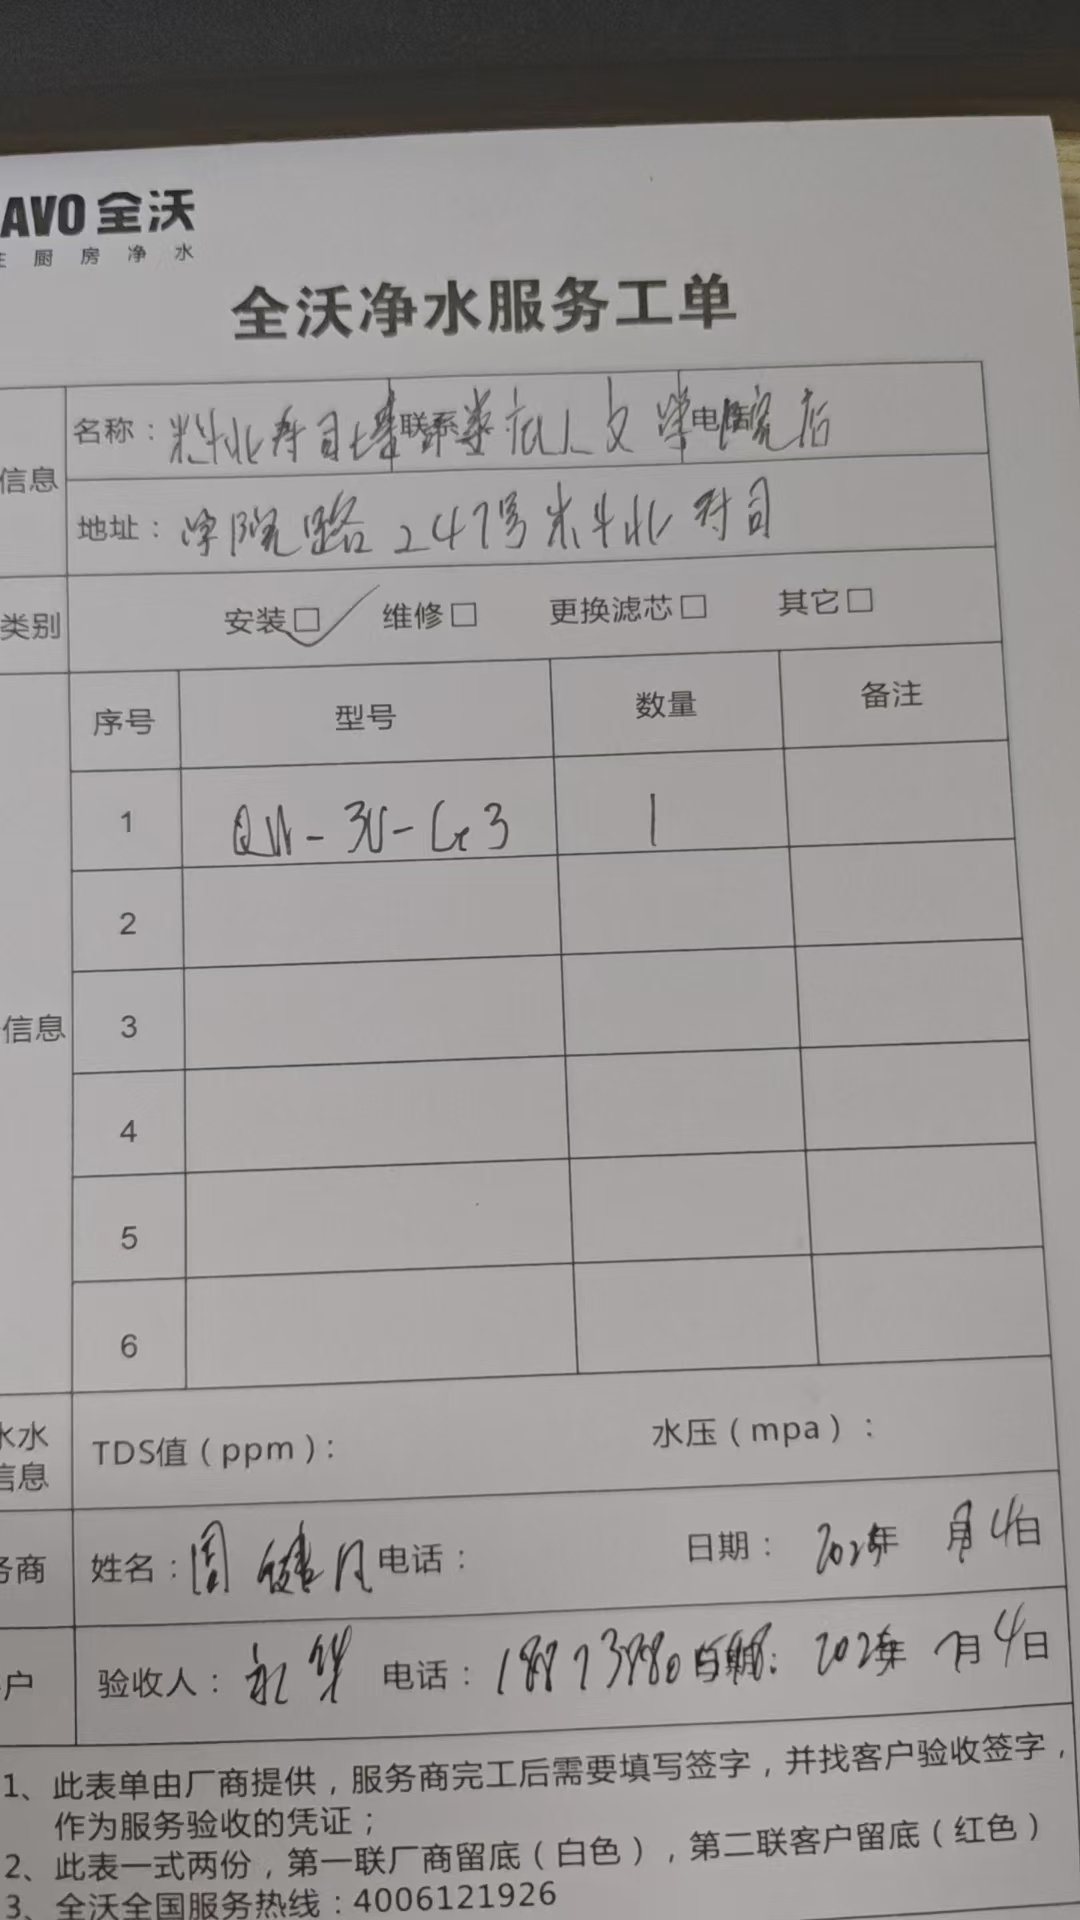 AVO 全沃
厨房净水
全沃净水服务工单
信息
名称： 联系 电话
地址：学院路247号米牛北寿司
类别
安装□ 维修□ 更换滤芯□ 其它□
序号 型号 数量 备注
1 QW-3U-G3 1
2
信息
3
4
5
6
水水
信息
TDS值（ppm）： 水压（mpa）：
务商
姓名：周 电话： 日期：2025年 月4日
户
验收人： 电话： 日期：2025年7月4日
1、此表单由厂商提供，服务商完工后需要填写签字，并找客户验收签字，
作为服务验收的凭证；
2、此表一式两份，第一联厂商留底（白色），第二联客户留底（红色）
3、全沃全国服务热线：4006121926